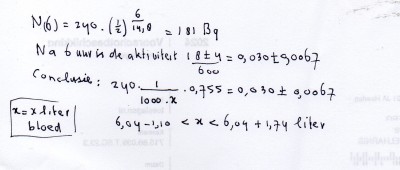 N(6) = 240 · (1/2)^(6/14,8) = 181 Bq
Na 6 uur is de aktiviteit (18±4)/600 = 0,030±0,0067
Conclusie: 240 · 1/(1000·x) · 0,755 = 0,030 ± 0,0067
x = x liter bloed
6,04 - 1,10 < x < 6,04 + 1,74 liter